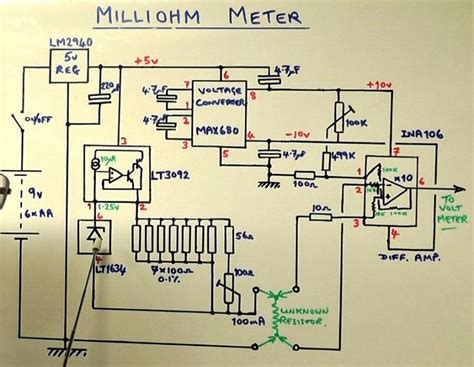 MILLIOHM METER
LM2940
5v
REG
+5v
220µF
4.7µF
4.7µF
4.7µF
7
1
2
3
6
8
4
5
VOLTAGE
CONVERTER
MAX680
+10v
-10v
100K
499K
4.7µF
100Ω
INA106
ON/OFF
9v
6xAA
3
10µA
LT3092
1
1.25v
2
6
4
LT1634
7x100Ω
0.1%
56Ω
100Ω
100mA
10Ω
UNKNOWN
RESISTOR
7
1
2
3
100K
10K
10K
100K
x10
6
4
TO
VOLT
METER
DIFF. AMP.